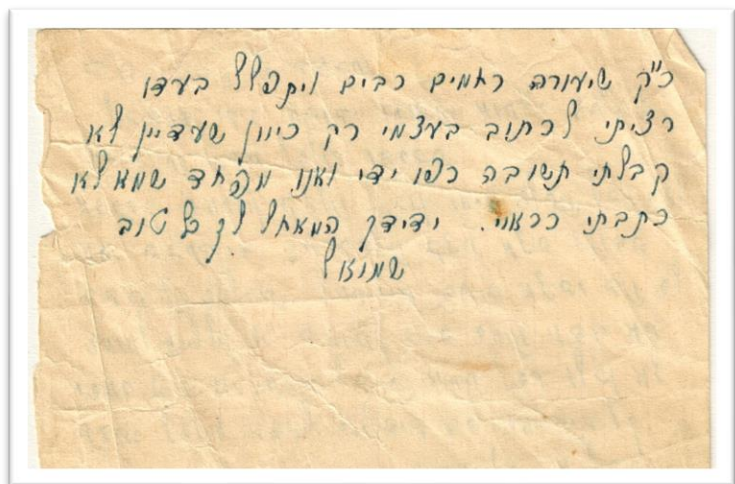 כ"ק שיעורר רחמים רבים ויתפלל בעדו
רציתי לכתוב בעצמי רק כיוון שעדיין לא
קבלתי תשובה רפו ידי ואני מפחד שמא לא
כתבתי כראוי. ידידך המאחל לך כל טוב
שמואל